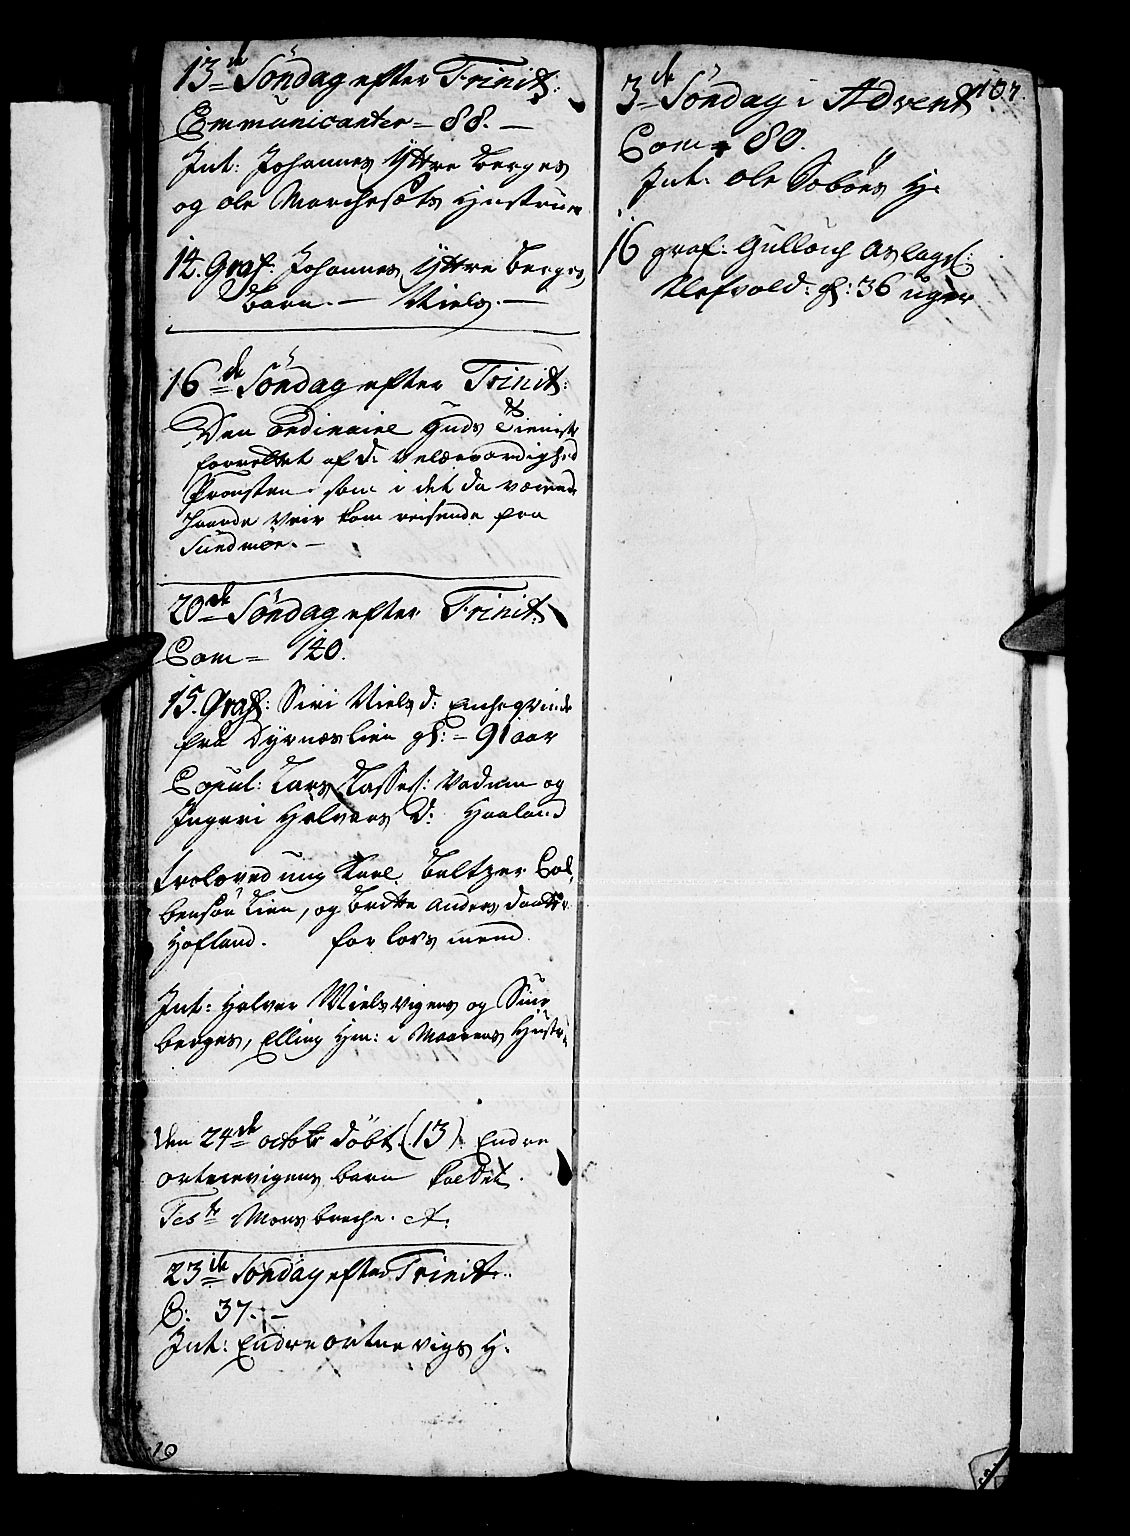 13de Søndag efter Trinit:
Communicanter = 88. —
Int: Johannes Yttre Berges
og Ole Marchesæts Hustruer
14. Graf: Johannes Yttre Berges
barn. — Niels. —
16de Søndag efter Trinit:
Den ordinaire Guds Tieniste
forrettet af d: velærværdighed
Provsten som i det da værende
haarde veir kom reisende fra
Sundmør. —
20de Søndag efter Trinit:
Com = 140.
15. Graf: Siri Niels d: Enkeqvinde
fra Dyrnæslien gl: = 91 aar
Copul: Lars Lasses: Vadum og
Ingeri Halvors D: Haaland
Troloved ung Karl Baltzer Col
bensøn Lien, og Britte Anders daatter
Hofland. for lovs mend.
Int: Halvor Nielsvigens og
berges, Elling Hm: i Maarens Hustr:
Den 24de octobr døbt (13) Endre
Ortnevigens barn kaldet.
Test: Mons Breche. et.
23de Søndag efter Trinit:
C: 37. —
Int: Endre Ortnevigs H.
19
3de Søndag i Advent 107.
Com = 80.
Int: Ole Bøbøes H:
16 graf: Gulloug Aslags:
Nefvold: gl: 36 uger